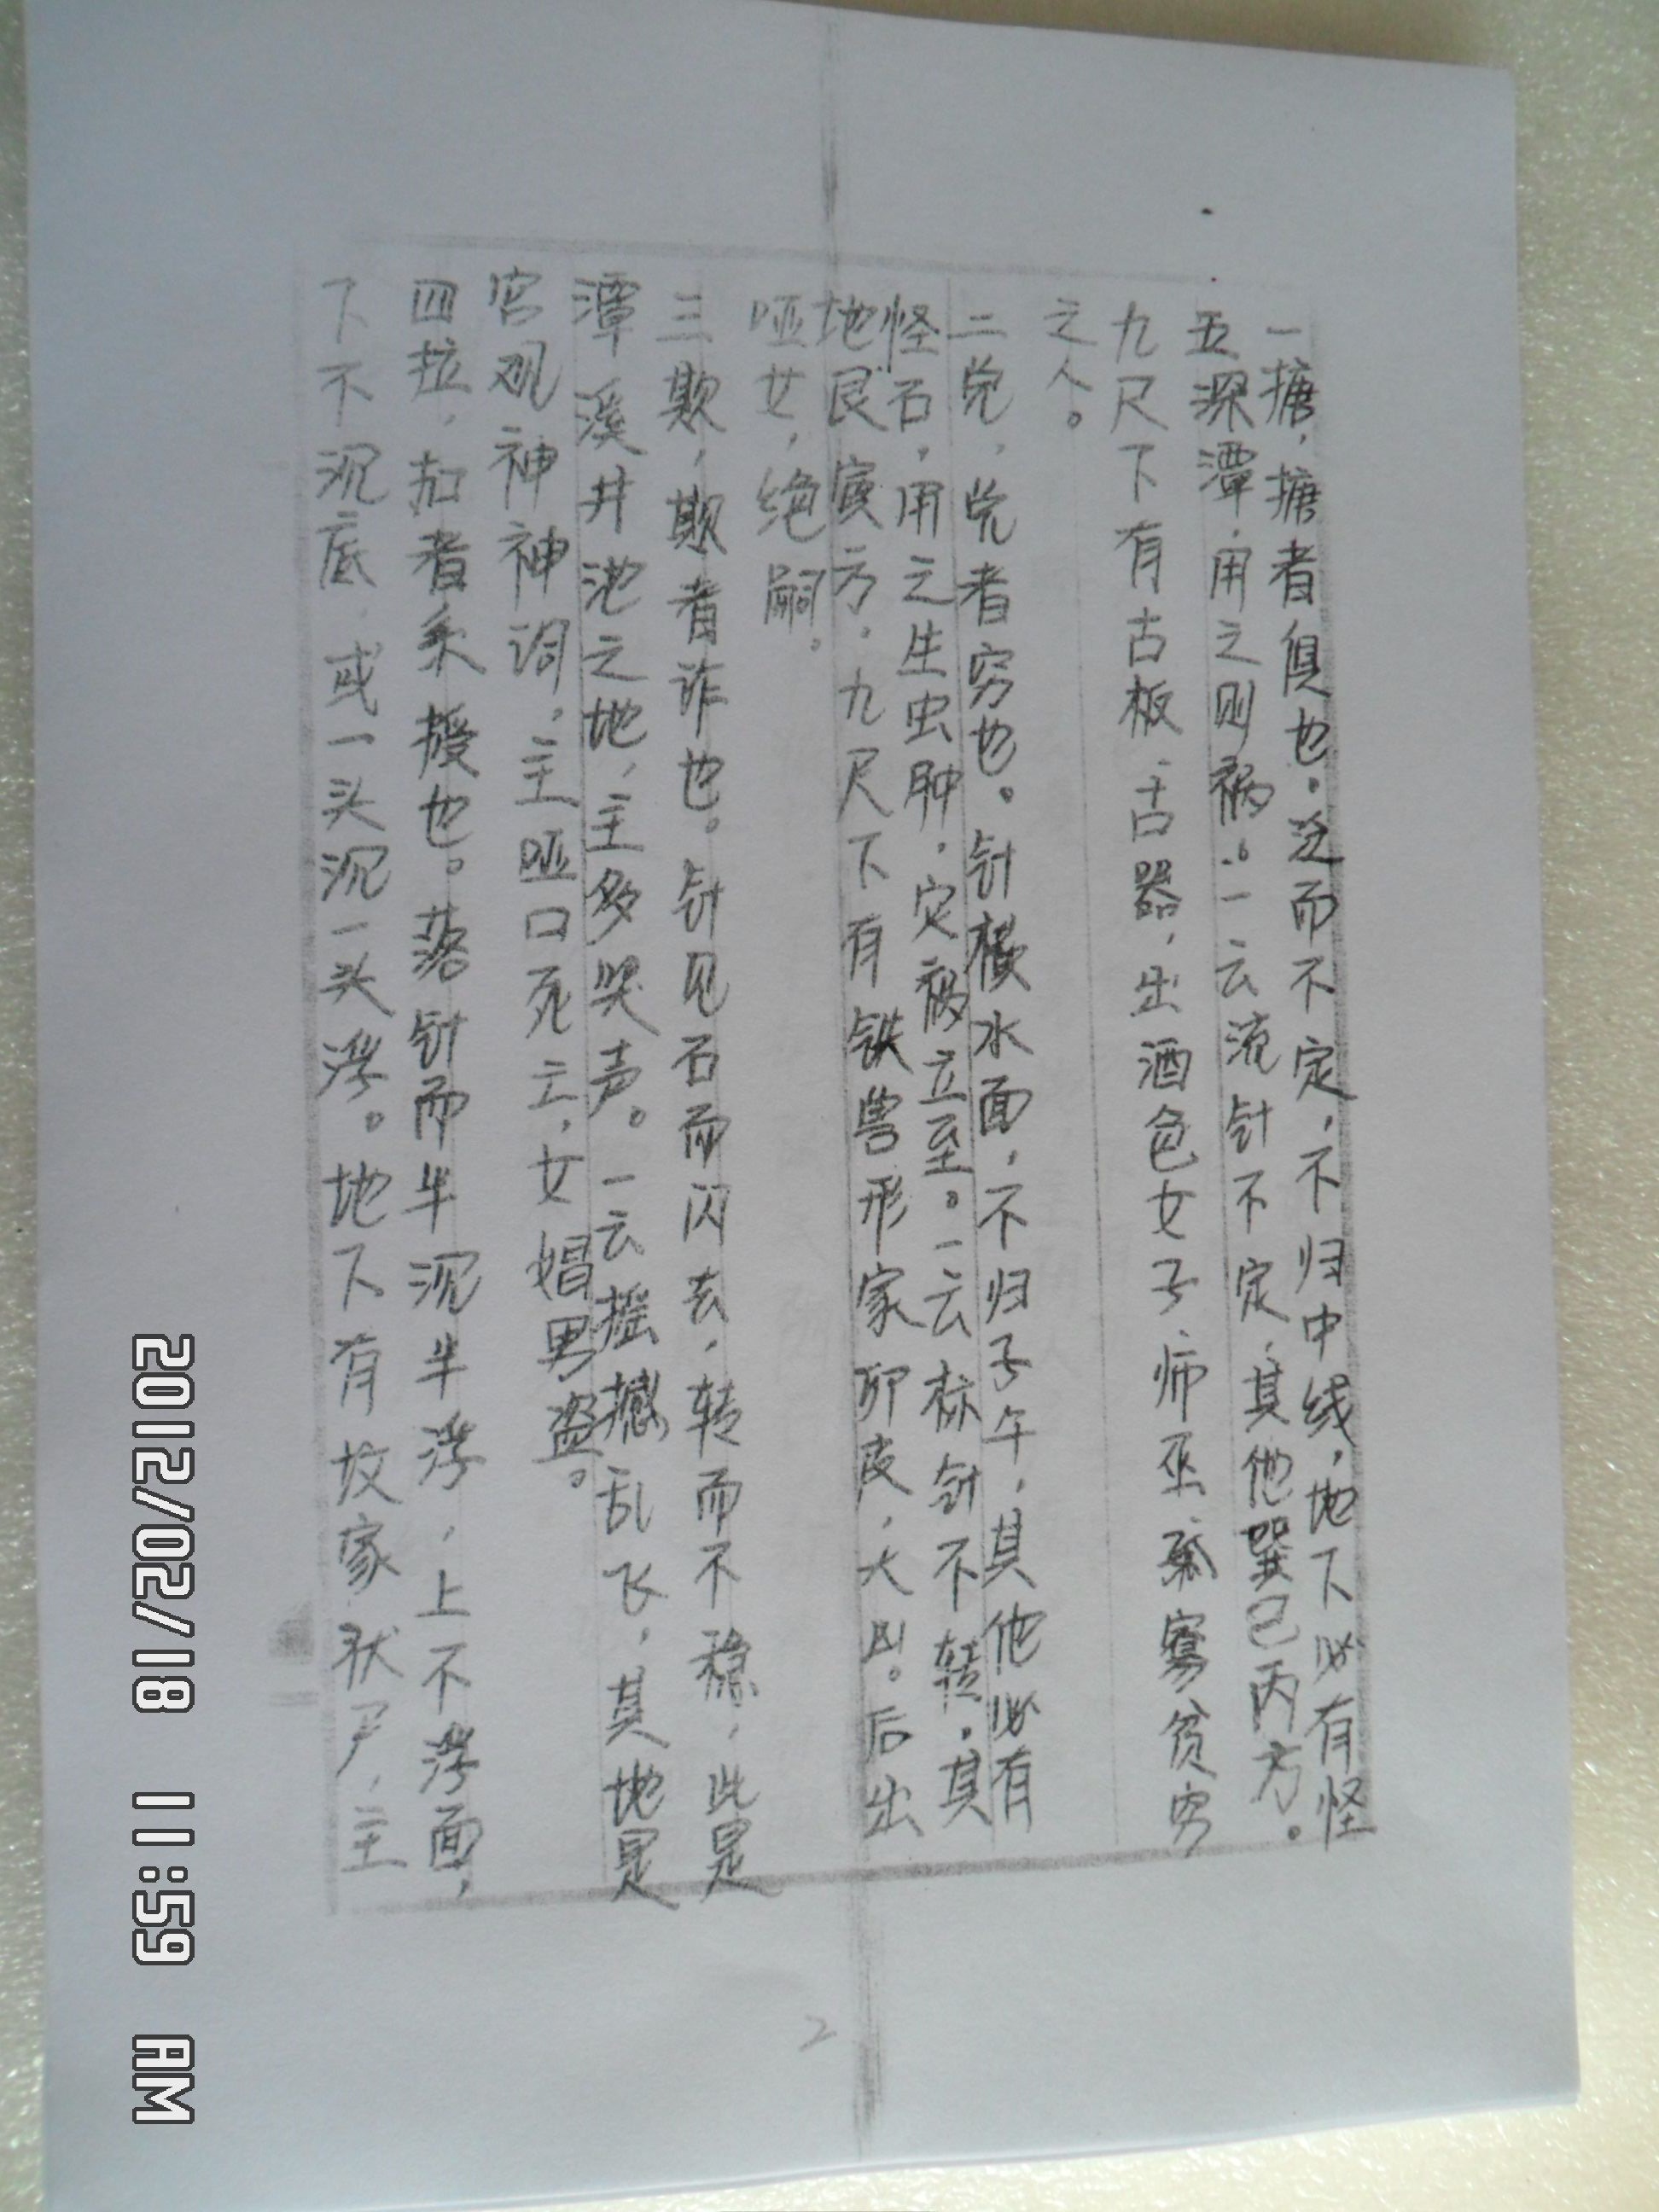 一搪，搪者惧也。泛而不定，不归中线，地下必有怪
五深潭，用之则祸。一云流针不定，其他巽巳丙方。
九尺下有古板古器，出酒色女子、师巫寡贫穷
之人。
二兑，兑者穷也。针横水面，不归子午，其他必有
怪石，用之生虫肿，灾祸立至。一云标针不转，其
地艮寅方，九尺下有铁兽形家卵皮，大凶。后出
哑女，绝嗣。
三欺，欺者诈也。针见石而闪去，转而不稳，此是
潭溪井池之地，主多哭声。一云摇撼乱飞，其地是
宫观神神词，主哑口死亡，女娼男盗。
四拉，者系援也。落针而半沉半浮，上不浮面，
下不沉底，或一头沉一头浮。地下有坟家伏尸，主
2
2012/02/18 11:59 AM